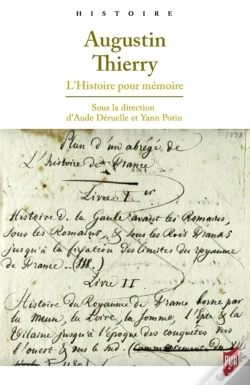 HISTOIRE
Augustin
Thierry
L'Histoire pour mémoire
Sous la direction
d'Aude Déruelle et Yann Potin
Plan d'un abrégé de
L'histoire de France
Livre Ier
Histoire de la Gaule avant les Romains,
sous les Romains, & sous les Rois Franks
jusqu'à la fixation des limites du royaume
de France - 888.)
Livre II
Histoire du Royaume de France borné par
la Meuse, la Loire, la Somme, l'Ept & la
Vilaine jusqu'à l'époque des conquêtes vers
l'ouest & vers le sud. (Commencement du
PUR